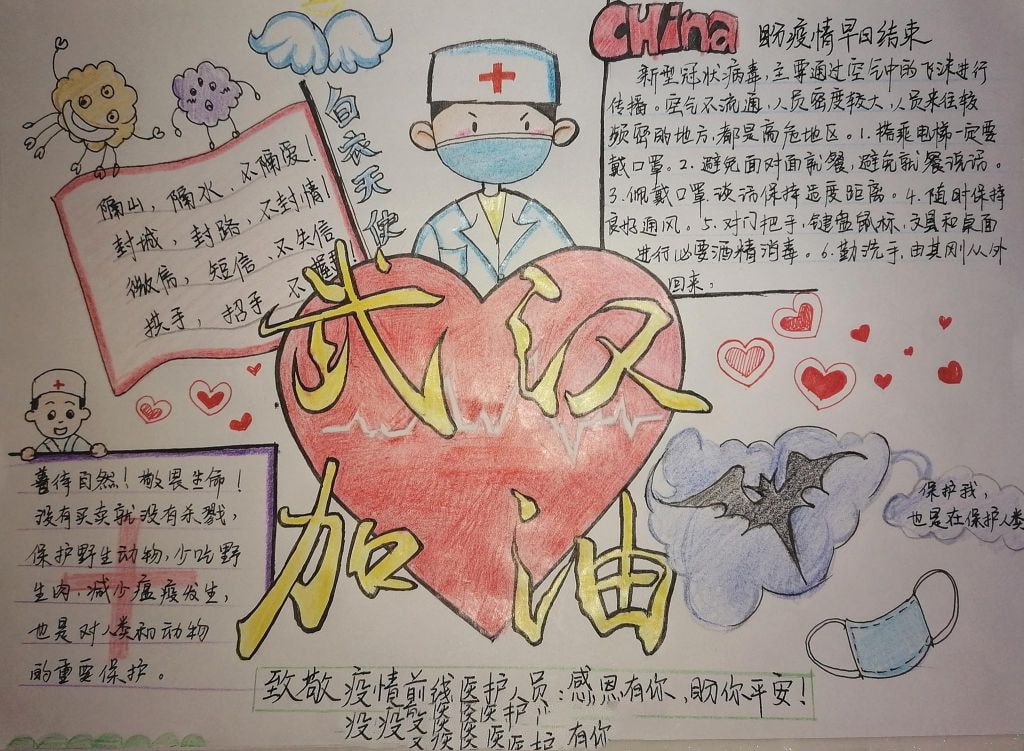 CHINA 盼疫情早日结束
新型冠状病毒,主要通过空气中的飞沫进行
传播。空气不流通,人员密度较大,人员来往较
频密的地方,都是高危地区。1.搭乘电梯一定要
戴口罩。2.避免面对面就餐,避免就餐说话。
3.佩戴口罩.谈话保持适度距离。4.随时保持
良好通风。5.对门把手,键盘鼠标,文具和桌面
进行必要酒精消毒。6.勤洗手,由其刚从外
回来。
白衣天使
隔山,隔水,不隔爱!
封城,封路,不封情!
微信,短信,不失信
拱手,招手 不握
武汉
加油
善待自然!敬畏生命!
没有买卖就没有杀戮,
保护野生动物,少吃野
生肉.减少瘟疫发生,
也是对人类和动物
的重要保护。
保护我,
也是在保护人类
致敬疫情前线医护人员:感恩有你,盼你平安!
有你